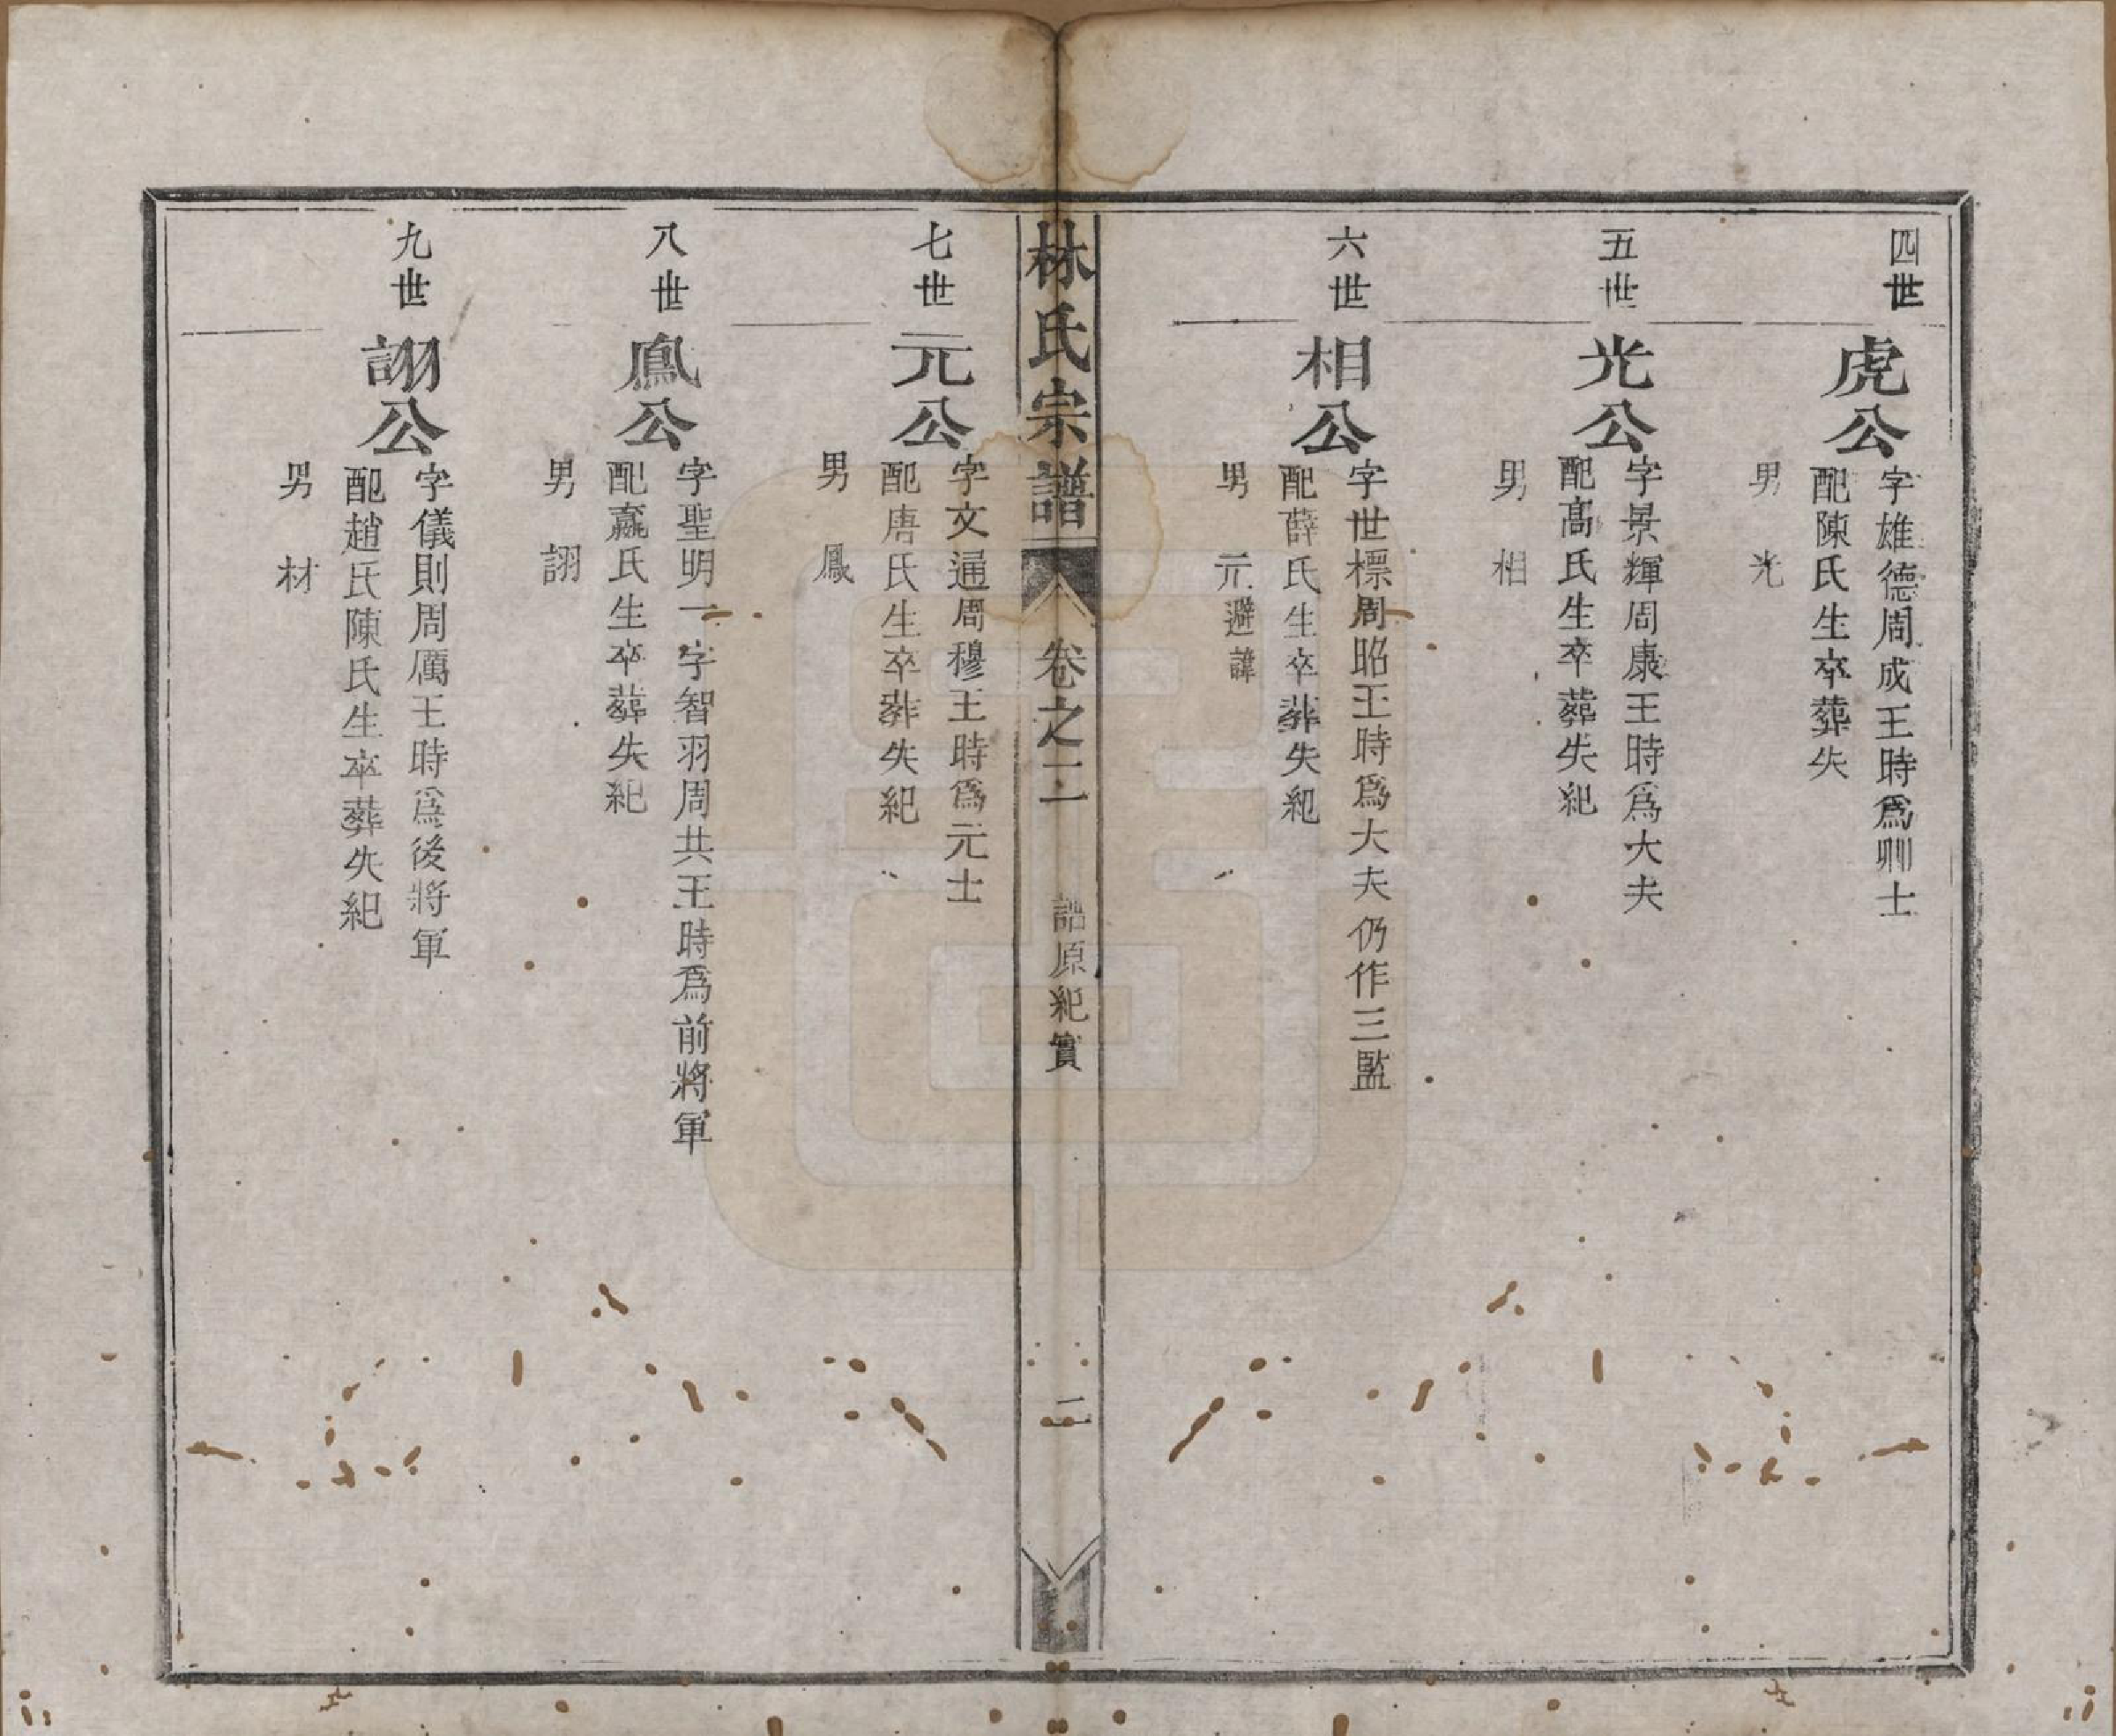 四世
虎公
字雄德周成王時爲卿士
配陳氏生卒葬失
男 光
五世
光公
字景輝周康王時爲大夫
配高氏生卒葬失紀
男 相
六世
相公
字世標周昭王時爲大夫仍作三監
配薛氏生卒葬失紀
男 元避諱
林氏宗譜 卷之二 譜原紀實 二
七世
元公
字文通周穆王時爲元士
配唐氏生卒葬失紀
男 鳳
八世
鳳公
字聖明一字智羽周共王時爲前將軍
配嬴氏生卒葬失紀
男 詡
九世
詡公
字儀則周厲王時爲後將軍
配趙氏陳氏生卒葬失紀
男 材